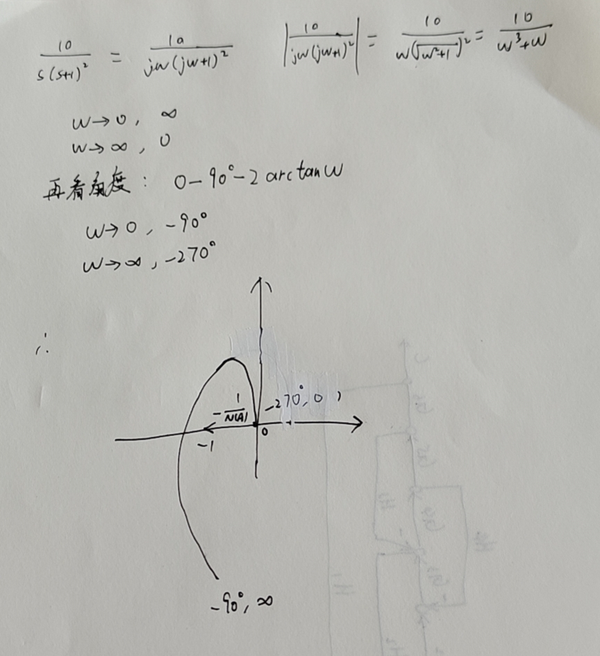 10/(s(s+1)²) = 10/(jw(jw+1)²) |10/(jw(jw+1)²)| = 10/(w(√(w²+1))²) = 10/(w³+w)
w→0, ∞
w→∞, 0
再看角度: 0-90°-2arctanw
w→0, -90°
w→∞, -270°
∴
-1/N(A) -270°, 0
-1 0
-90°, ∞